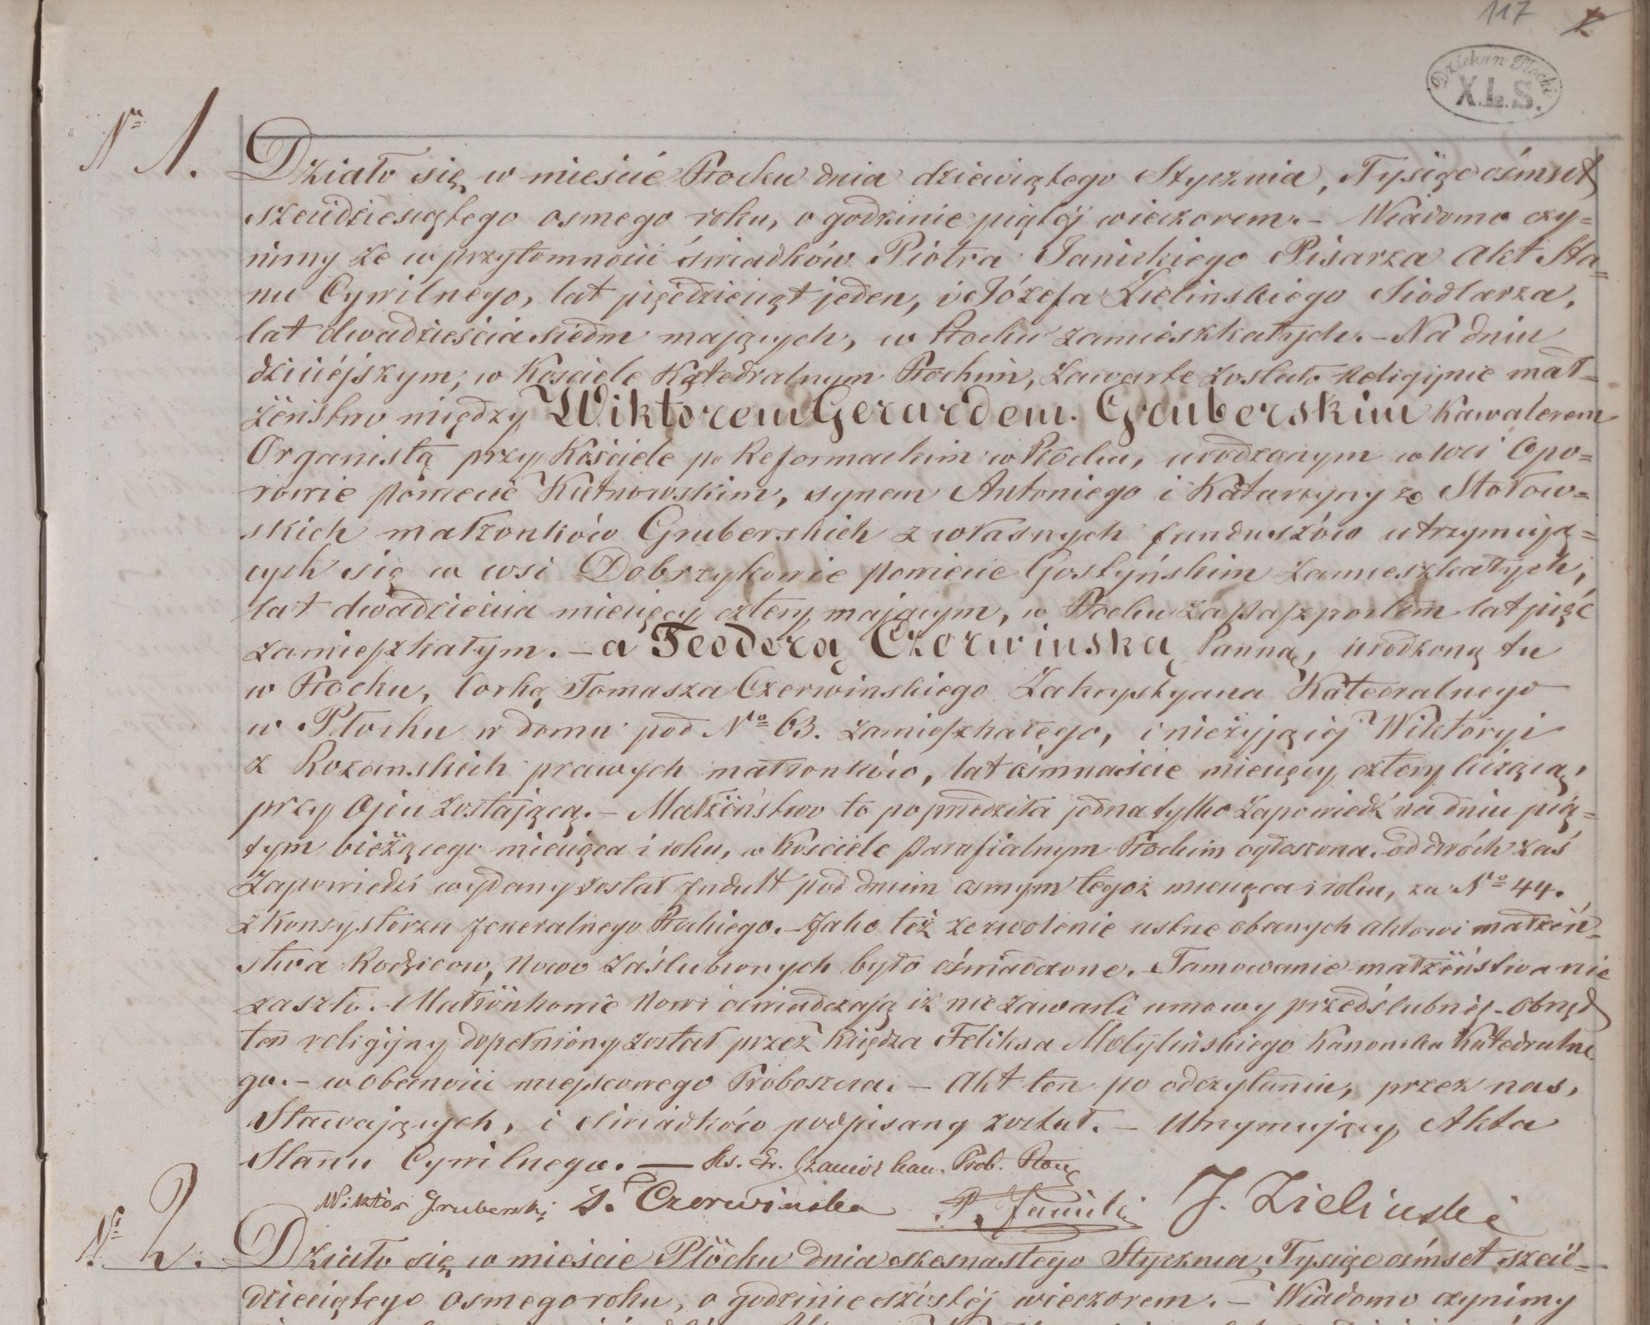 117
Dziekan Płocki
X.L.S.
Nr 1.
Działo się w mieście Płocku dnia dziewiątego Stycznia, Tysiąc ośmset
sześćdziesiątego osmego roku, o godzinie piątej wieczorem. – Wiadomo czy=
nimy że w przytomności świadków Piotra Janickiego Pisarza Akt Sta=
nu Cywilnego, lat pięćdziesiąt jeden, i Józefa Zielinskiego Siodlarza,
lat dwadzieścia siedm mających, w Płocku zamieszkałych. – Na dniu
dzisiéjszym, w Kościele Katedralnym Płockim, zawarte zostało Religijne mał=
żeństwo między Wiktorem Gerardem Gruberskim Kawalerem
Organistą przy Kościele po Reformackim w Płocku, urodzonym w wsi Opo=
rowie Powiecie Kutnowskim, synem Antoniego i Katarzyny ze Stołow=
skich małżonków Gruberskich z własnych funduszów utrzymują=
cych się w wsi Dobrzykowie Powiecie Gostyńskim zamieszkałych,
lat dwadzieścia miesięcy cztery mającym, w Płocku za Paszportem lat pięć
zamieszkałym. – a Teodorą Czerwinską Panną, urodzoną tu
w Płocku, Corką Tomasza Czerwinskiego Zakrystyana Katedralnego
w Płocku w domu pod No 63. zamieszkałego, i nieżyjącéj Wiktoryi
z Rozanskich prawych małżonków, lat ośmnaście miesięcy cztery liczącą,
przy Ojcu zostającą. – Małżeństwo to poprzedziła jedna tylko zapowiedź na dniu pią=
tym bieżącego miesiąca i roku, w Kościele Parafialnym Płockim ogłoszona. od dwóch zaś
Zapowiedzi wydany został Indult pod dniem osmym tegoż miesiąca i roku, za No 44.
z Konsystorza Jeneralnego Płockiego. – Jako też zezwolenie ustne obecnych aktowi małżeń=
stwa Rodziców, Nowo zaślubionych było oświadczone. – Tamowanie małżeństwa nie
zaszło. – Małżonkowie Nowi oświadczają iż nie zawarli umowy przedślubnéj. – Obrzęd
ten religijny dopełniony został przez Księdza Feliksa Modylińskiego Kanonika Katedralne
go. – w obecności miejscowego Proboszcza. – Akt ten po odczytaniu, przez nas,
Stawających, i świadków podpisany został. – Utrzymujący Akta
Stanu Cywilnego. — Ks. Prob.
Wiktor Gruberski T. Czerwińska P. Janicki J. Zieliński
Nr 2.
Działo się w mieście Płocku dnia szesnastego Stycznia, Tysiąc ośmset sześć=
dziesiątego osmego roku, o godzinie szóstéj wieczorem. – Wiadomo czynimy